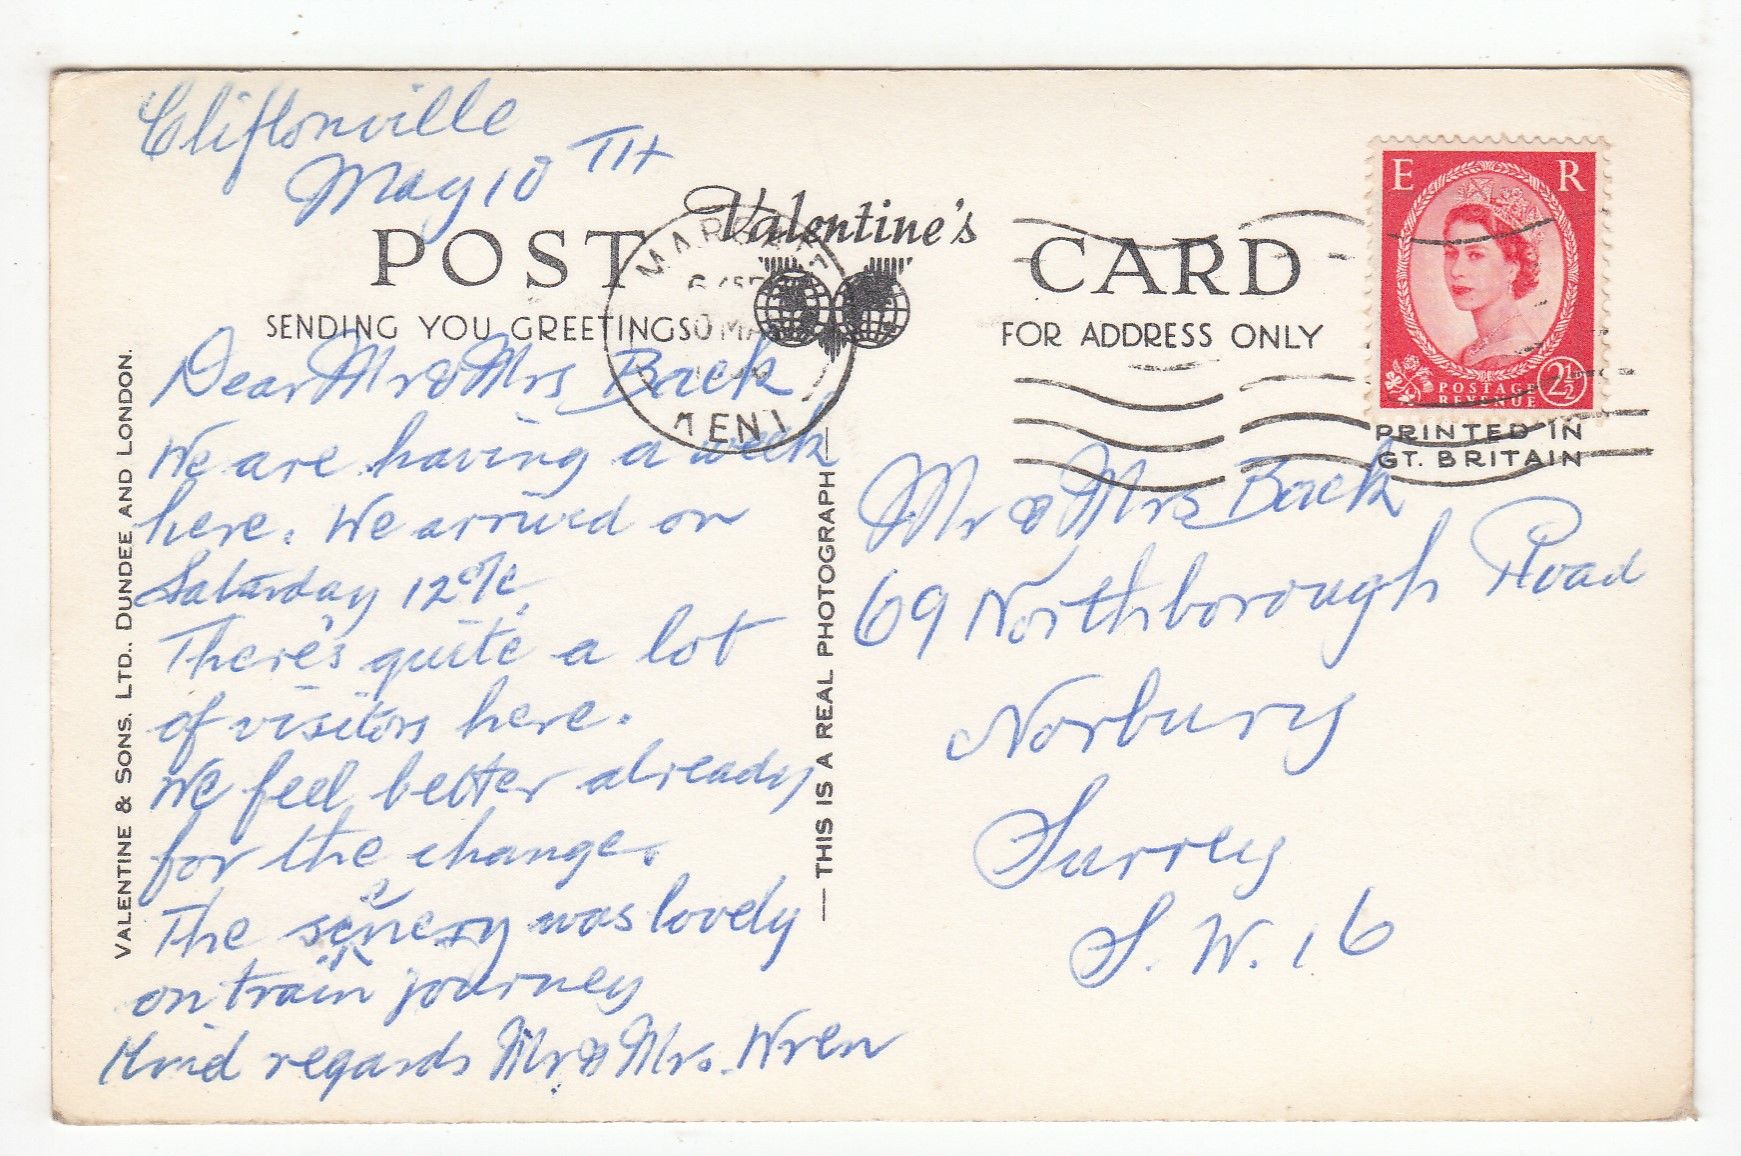 Cliftonville
May 10TH
Valentine's
POST CARD
SENDING YOU GREETINGS
FOR ADDRESS ONLY
MARGATE
KENT
E R
POSTAGE
REVENUE
2½
PRINTED IN
GT. BRITAIN
VALENTINE & SONS. LTD., DUNDEE AND LONDON.
— THIS IS A REAL PHOTOGRAPH —
Dear Mr & Mrs Back
We are having a week
here. We arrived on
Saturday 12 o/c
There's quite a lot
of visitors here.
We feel better already
for the change.
The scenery was lovely
on train journey
Kind regards Mr & Mrs. Wren
Mr & Mrs Back
69 Northborough Road
Norbury
Surrey
S. W. 16